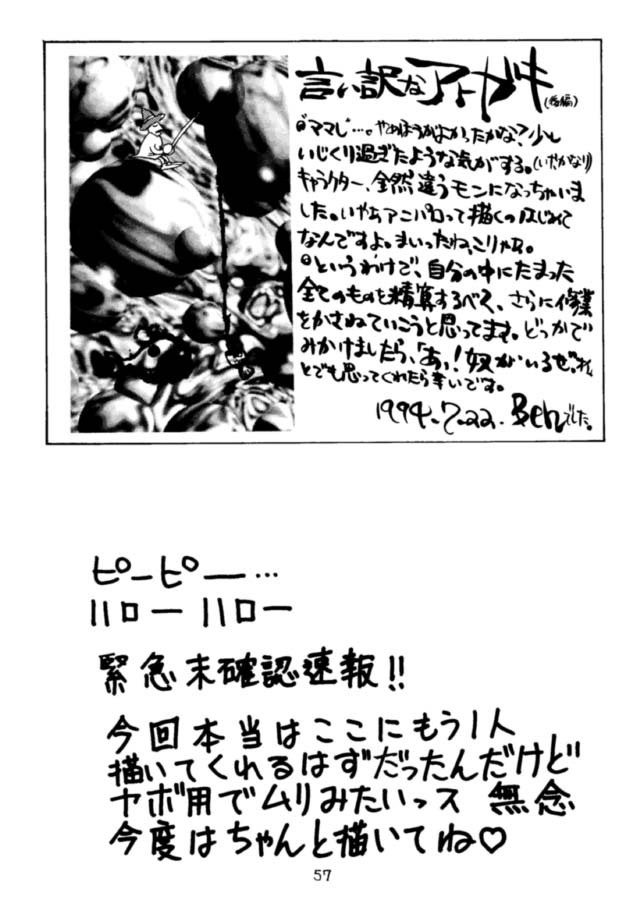 言い訳なアトガキ(後編)
◎"ママレ"…。やめたほうがよかったかな？少し
いじくり過ぎたような気がする。(いやかなり)
キャラクター、全然違うモンになっちゃいま
した。いやぁアニパロって描くのはじめて
なんですよ。まいったね、こりゃあ。
◎というわけで、自分の中にたまった
全てのものを精算するべく、さらに修業
をかさねていこうと思ってます。どっかで
みかけましたら、「あ！奴がいるぜ。」
とでも思ってくれたら幸いです。
1994.7.22. Benでした。
ピーピー…
ハローハロー
緊急未確認速報!!
今回本当はここにもう1人
描いてくれるはずだったんだけど
ヤボ用でムリみたいっス 無念
今度はちゃんと描いてね♡
57